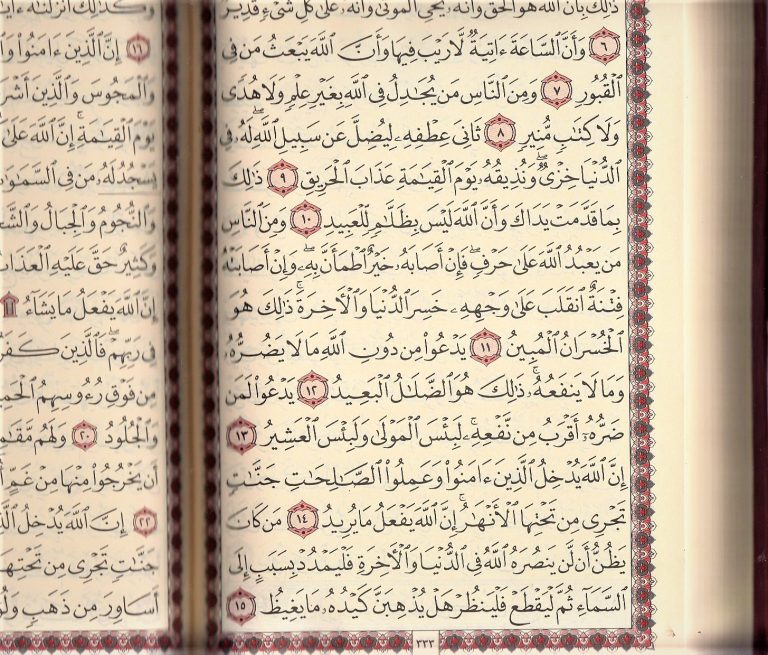 ذَٰلِكَ بِأَنَّ ٱللَّهَ هُوَ ٱلْحَقُّ وَأَنَّهُۥ يُحْىِ ٱلْمَوْتَىٰ وَأَنَّهُۥ عَلَىٰ كُلِّ شَىْءٍ قَدِيرٌ
٦ وَأَنَّ ٱلسَّاعَةَ ءَاتِيَةٌ لَّا رَيْبَ فِيهَا وَأَنَّ ٱللَّهَ يَبْعَثُ مَن فِى
ٱلْقُبُورِ ٧ وَمِنَ ٱلنَّاسِ مَن يُجَٰدِلُ فِى ٱللَّهِ بِغَيْرِ عِلْمٍ وَلَا هُدًى
وَلَا كِتَٰبٍ مُّنِيرٍ ٨ ثَانِىَ عِطْفِهِۦ لِيُضِلَّ عَن سَبِيلِ ٱللَّهِ ۖ لَهُۥ فِى
ٱلدُّنْيَا خِزْىٌ ۖ وَنُذِيقُهُۥ يَوْمَ ٱلْقِيَٰمَةِ عَذَابَ ٱلْحَرِيقِ ٩ ذَٰلِكَ
بِمَا قَدَّمَتْ يَدَاكَ وَأَنَّ ٱللَّهَ لَيْسَ بِظَلَّٰمٍ لِّلْعَبِيدِ ١٠ وَمِنَ ٱلنَّاسِ
مَن يَعْبُدُ ٱللَّهَ عَلَىٰ حَرْفٍ ۖ فَإِنْ أَصَابَهُۥ خَيْرٌ ٱطْمَأَنَّ بِهِۦ ۖ وَإِنْ أَصَابَتْهُ
فِتْنَةٌ ٱنقَلَبَ عَلَىٰ وَجْهِهِۦ خَسِرَ ٱلدُّنْيَا وَٱلْءَاخِرَةَ ۚ ذَٰلِكَ هُوَ
ٱلْخُسْرَانُ ٱلْمُبِينُ ١١ يَدْعُوا۟ مِن دُونِ ٱللَّهِ مَا لَا يَضُرُّهُۥ
وَمَا لَا يَنفَعُهُۥ ۚ ذَٰلِكَ هُوَ ٱلضَّلَٰلُ ٱلْبَعِيدُ ١٢ يَدْعُوا۟ لَمَن
ضَرُّهُۥٓ أَقْرَبُ مِن نَّفْعِهِۦ ۚ لَبِئْسَ ٱلْمَوْلَىٰ وَلَبِئْسَ ٱلْعَشِيرُ ١٣
إِنَّ ٱللَّهَ يُدْخِلُ ٱلَّذِينَ ءَامَنُوا۟ وَعَمِلُوا۟ ٱلصَّٰلِحَٰتِ جَنَّٰتٍ
تَجْرِى مِن تَحْتِهَا ٱلْأَنْهَٰرُ ۚ إِنَّ ٱللَّهَ يَفْعَلُ مَا يُرِيدُ ١٤ مَن كَانَ
يَظُنُّ أَن لَّن يَنصُرَهُ ٱللَّهُ فِى ٱلدُّنْيَا وَٱلْءَاخِرَةِ فَلْيَمْدُدْ بِسَبَبٍ إِلَى
ٱلسَّمَآءِ ثُمَّ لْيَقْطَعْ فَلْيَنظُرْ هَلْ يُذْهِبَنَّ كَيْدُهُۥ مَا يَغِيظُ ١٥
٣٣٣
وَكَذَٰلِكَ أَنزَلْنَٰهُ
١٦ إِنَّ ٱلَّذِينَ ءَامَنُوا۟
وَٱلْمَجُوسَ وَٱلَّذِينَ
يَوْمَ ٱلْقِيَٰمَةِ ۚ إِنَّ ٱللَّهَ عَلَىٰ
يَسْجُدُ لَهُۥ مَن فِى
وَٱلنُّجُومُ وَٱلْجِبَالُ
وَكَثِيرٌ حَقَّ عَلَيْهِ
إِنَّ ٱللَّهَ يَفْعَلُ مَا يَشَآءُ ۩
فِى رَبِّهِمْ ۖ فَٱلَّذِينَ
مِن فَوْقِ رُءُوسِهِمُ
وَٱلْجُلُودُ ٢٠ وَلَهُم
أَن يَخْرُجُوا۟ مِنْهَا مِنْ غَمٍّ
٢٢ إِنَّ ٱللَّهَ يُدْخِلُ
جَنَّٰتٍ تَجْرِى مِن تَحْتِهَا
أَسَاوِرَ مِن ذَهَبٍ